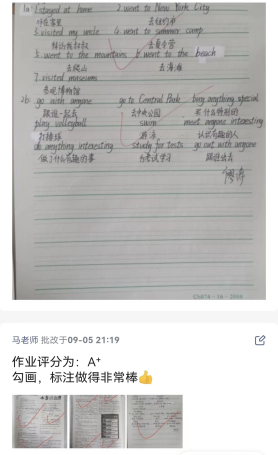 1a 1.stayed at home 2.went to New York City
待在家里 去纽约市
3.visited my uncle 4.went to summer camp
拜访我叔叔 去夏令营
5.went to the mountains 6.went to the beach
去爬山 去海滩
7.visited museums
参观博物馆
2b go with anyone go to Central Park buy anything special
跟谁一起去 去中央公园 买什么特别的
play volleyball swim meet anyone interesting
打排球 游泳 认识有趣的人
do anything interesting study for tests go out with anyone
做了什么有趣的事 为考试学习 跟谁出去
马老师 批改于09-05 21:19
作业评分为：A+
勾画，标注做得非常棒👍